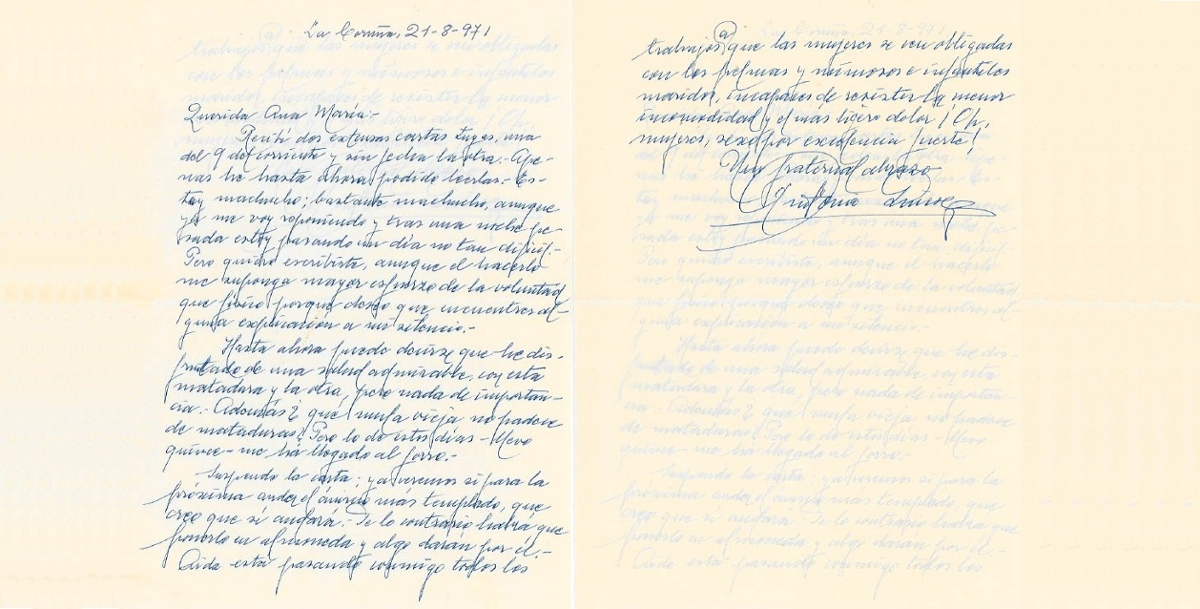 La Coruña, 21-8-971
Querida Ana María:-
Recibí dos extensas cartas tuyas, una
del 9 de corriente y sin fecha la otra.- Ape-
nas he hasta ahora podido leerlas.- Es-
toy machucho; bastante machucho, aunque
ya me voy reponiendo y tras una noche pe-
sada estoy pasando un día no tan difícil.-
Pero quiero escribirte, aunque el hacerlo
me suponga mayor esfuerzo de la voluntad
que físico porque deseo que encuentres al-
guna explicación a mi silencio.-
Hasta ahora puede decirse que he dis-
frutado de una salud admirable, con esta
matadura y la otra, pero nada de importan-
cia.- Además ¿qué mula vieja no padece
de mataduras? Pero lo de estos días - llevo
quince - me ha llegado al forro.-
Suspendo la carta; ya veremos si para la
próxima anda el ánimo más templado, que
creo que sí andará.- De lo contrario habrá que
ponerlo en almoneda y algo darán por él.-
Aida está pasando conmigo todos los
trabajos a que las mujeres se ven obligadas
con los pelmas y mimosos e infantiles
maridos, incapaces de resistir la menor
incomodidad y el más ligero dolor ¡Oh,
mujeres, sexo por excelencia fuerte!
Un fraternal abrazo